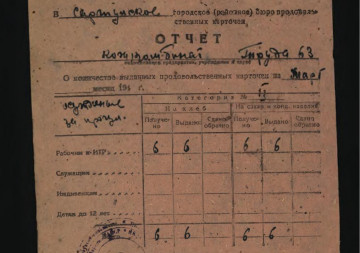 В Сарапульское городской (районное) бюро продоволь-
ственных карточек
ОТЧЕТ
Кожкомбинат Труда 63
наименование предприятия, учреждения и адрес
О количестве выданных продовольственных карточек на Март
месяц 194 г.
Категория № II
На хлеб
Получено Выдано Сдано обратно
Получено Выдано Сдано обратно
Рабочим и ИТР 6 6 6 6
Служащим
Иждивенцам
Детям до 12 лет
6 6 6 6